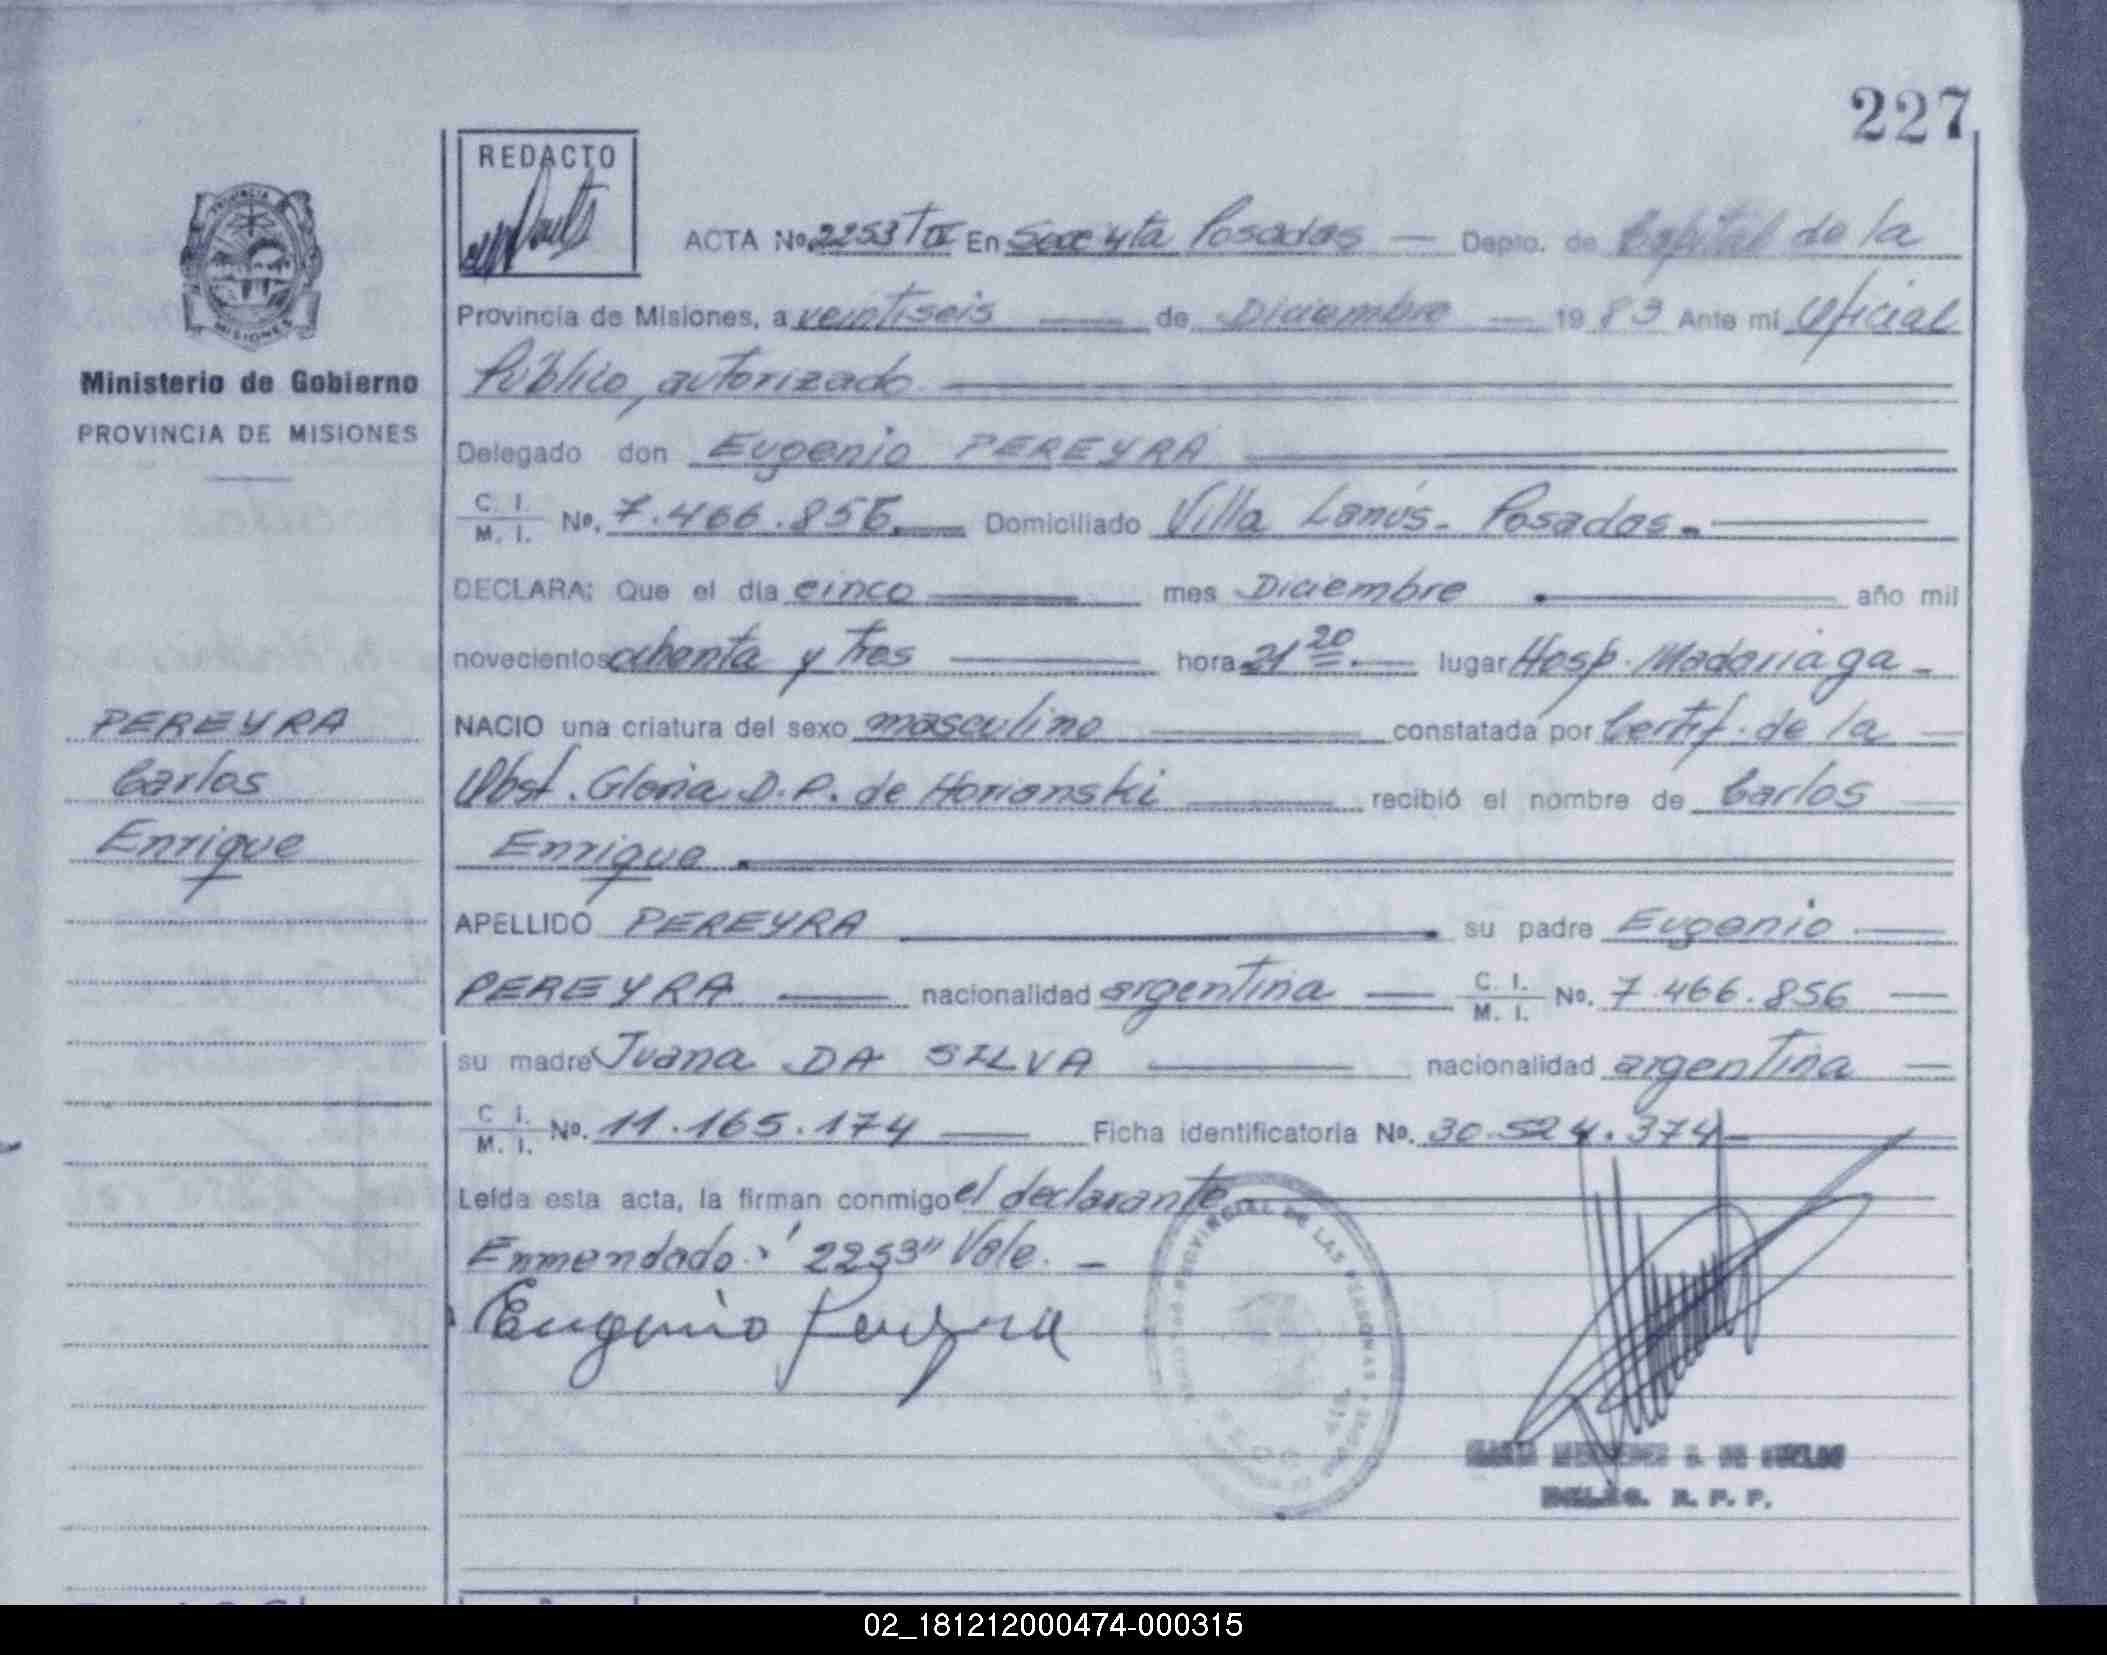 227
REDACTO
ACTA No. 2253 TIV En Secc 4ta Posadas — Depto. de Capital de la
PROVINCIA
MISIONES
Provincia de Misiones, a veintiseis — de Diciembre — 1983 Ante mi Oficial
Ministerio de Gobierno
Público, autorizado
PROVINCIA DE MISIONES
Delegado don Eugenio PEREYRA
C. I. / M. I. No. 7.466.856. Domiciliado Villa Lanús - Posadas.-
DECLARA: Que el dia cinco mes Diciembre año mil
novecientos ochenta y tres hora 21 20 lugar Hosp. Madariaga -
PEREYRA
NACIO una criatura del sexo masculino constatada por Certif. de la
Carlos
Obst. Gloria D. P. de Horianski recibió el nombre de Carlos
Enrique
Enrique.
APELLIDO PEREYRA su padre Eugenio
PEREYRA nacionalidad argentina C. I. / M. I. No. 7.466.856
su madre Juana DA SILVA nacionalidad argentina
C. I. / M. I. No. 11.165.174 Ficha identificatoria No. 30.524.374
Leída esta acta, la firman conmigo el declarante
Enmendado: "2253" Vale. -
Eugenio Pereyra
PROVINCIAL DE LAS PERSONAS
R. P. P.
02_181212000474-000315